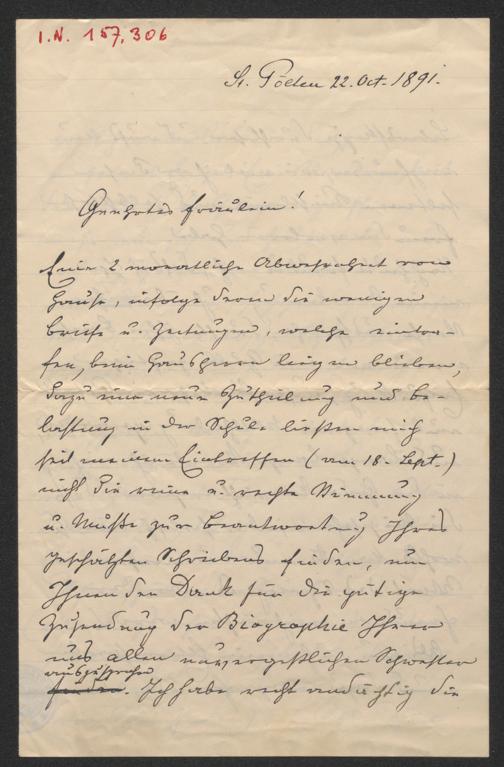 I.N. 157,306
St. Pölten 22. Oct. 1891.
Geehrtes Fräulein!
Eine 2 monatliche Abwesenheit vom
Hause, infolge deren die wenigen
Briefe u. Zeitungen, welche eintra-
fen, beim Hausherrn liegen blieben,
dazu eine neue Zutheilung und Be-
lastung in der Schule ließen mich
seit meinem Eintreffen (am 18. Sept.)
nicht die reine u. rechte Stimmung
u. Muße zur Beantwortung Ihres
geschätzten Schreibens finden, um
Ihnen den Dank für die gütige
Zusendung der Biographie Ihrer
uns allen unvergeßlichen Schwester
auszusprechen
finden. Ich habe recht andächtig die